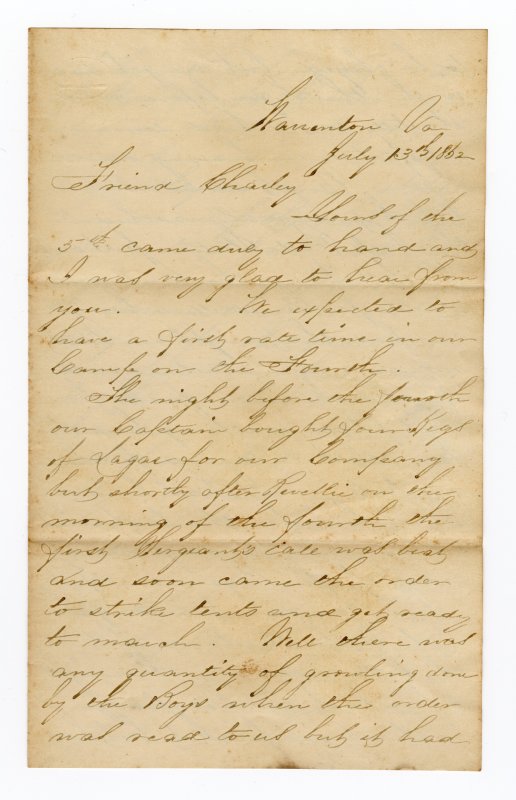 Warrenton Va
July 13th 1862
Friend Charley
Yours of the
5th came duly to hand and
I was very glad to hear from
you. We expected to
have a first rate time in our
Camp on the Fourth.
The night before the fourth
our Captain bought four Kegs
of Lagar for our Company
but shortly after Revellie on the
morning of the fourth the
first Sergeants call was beat
and soon came the order
to strike tents and get ready
to march. Well there was
any quantity of growling done
by the Boys when the order
was read to us but it had